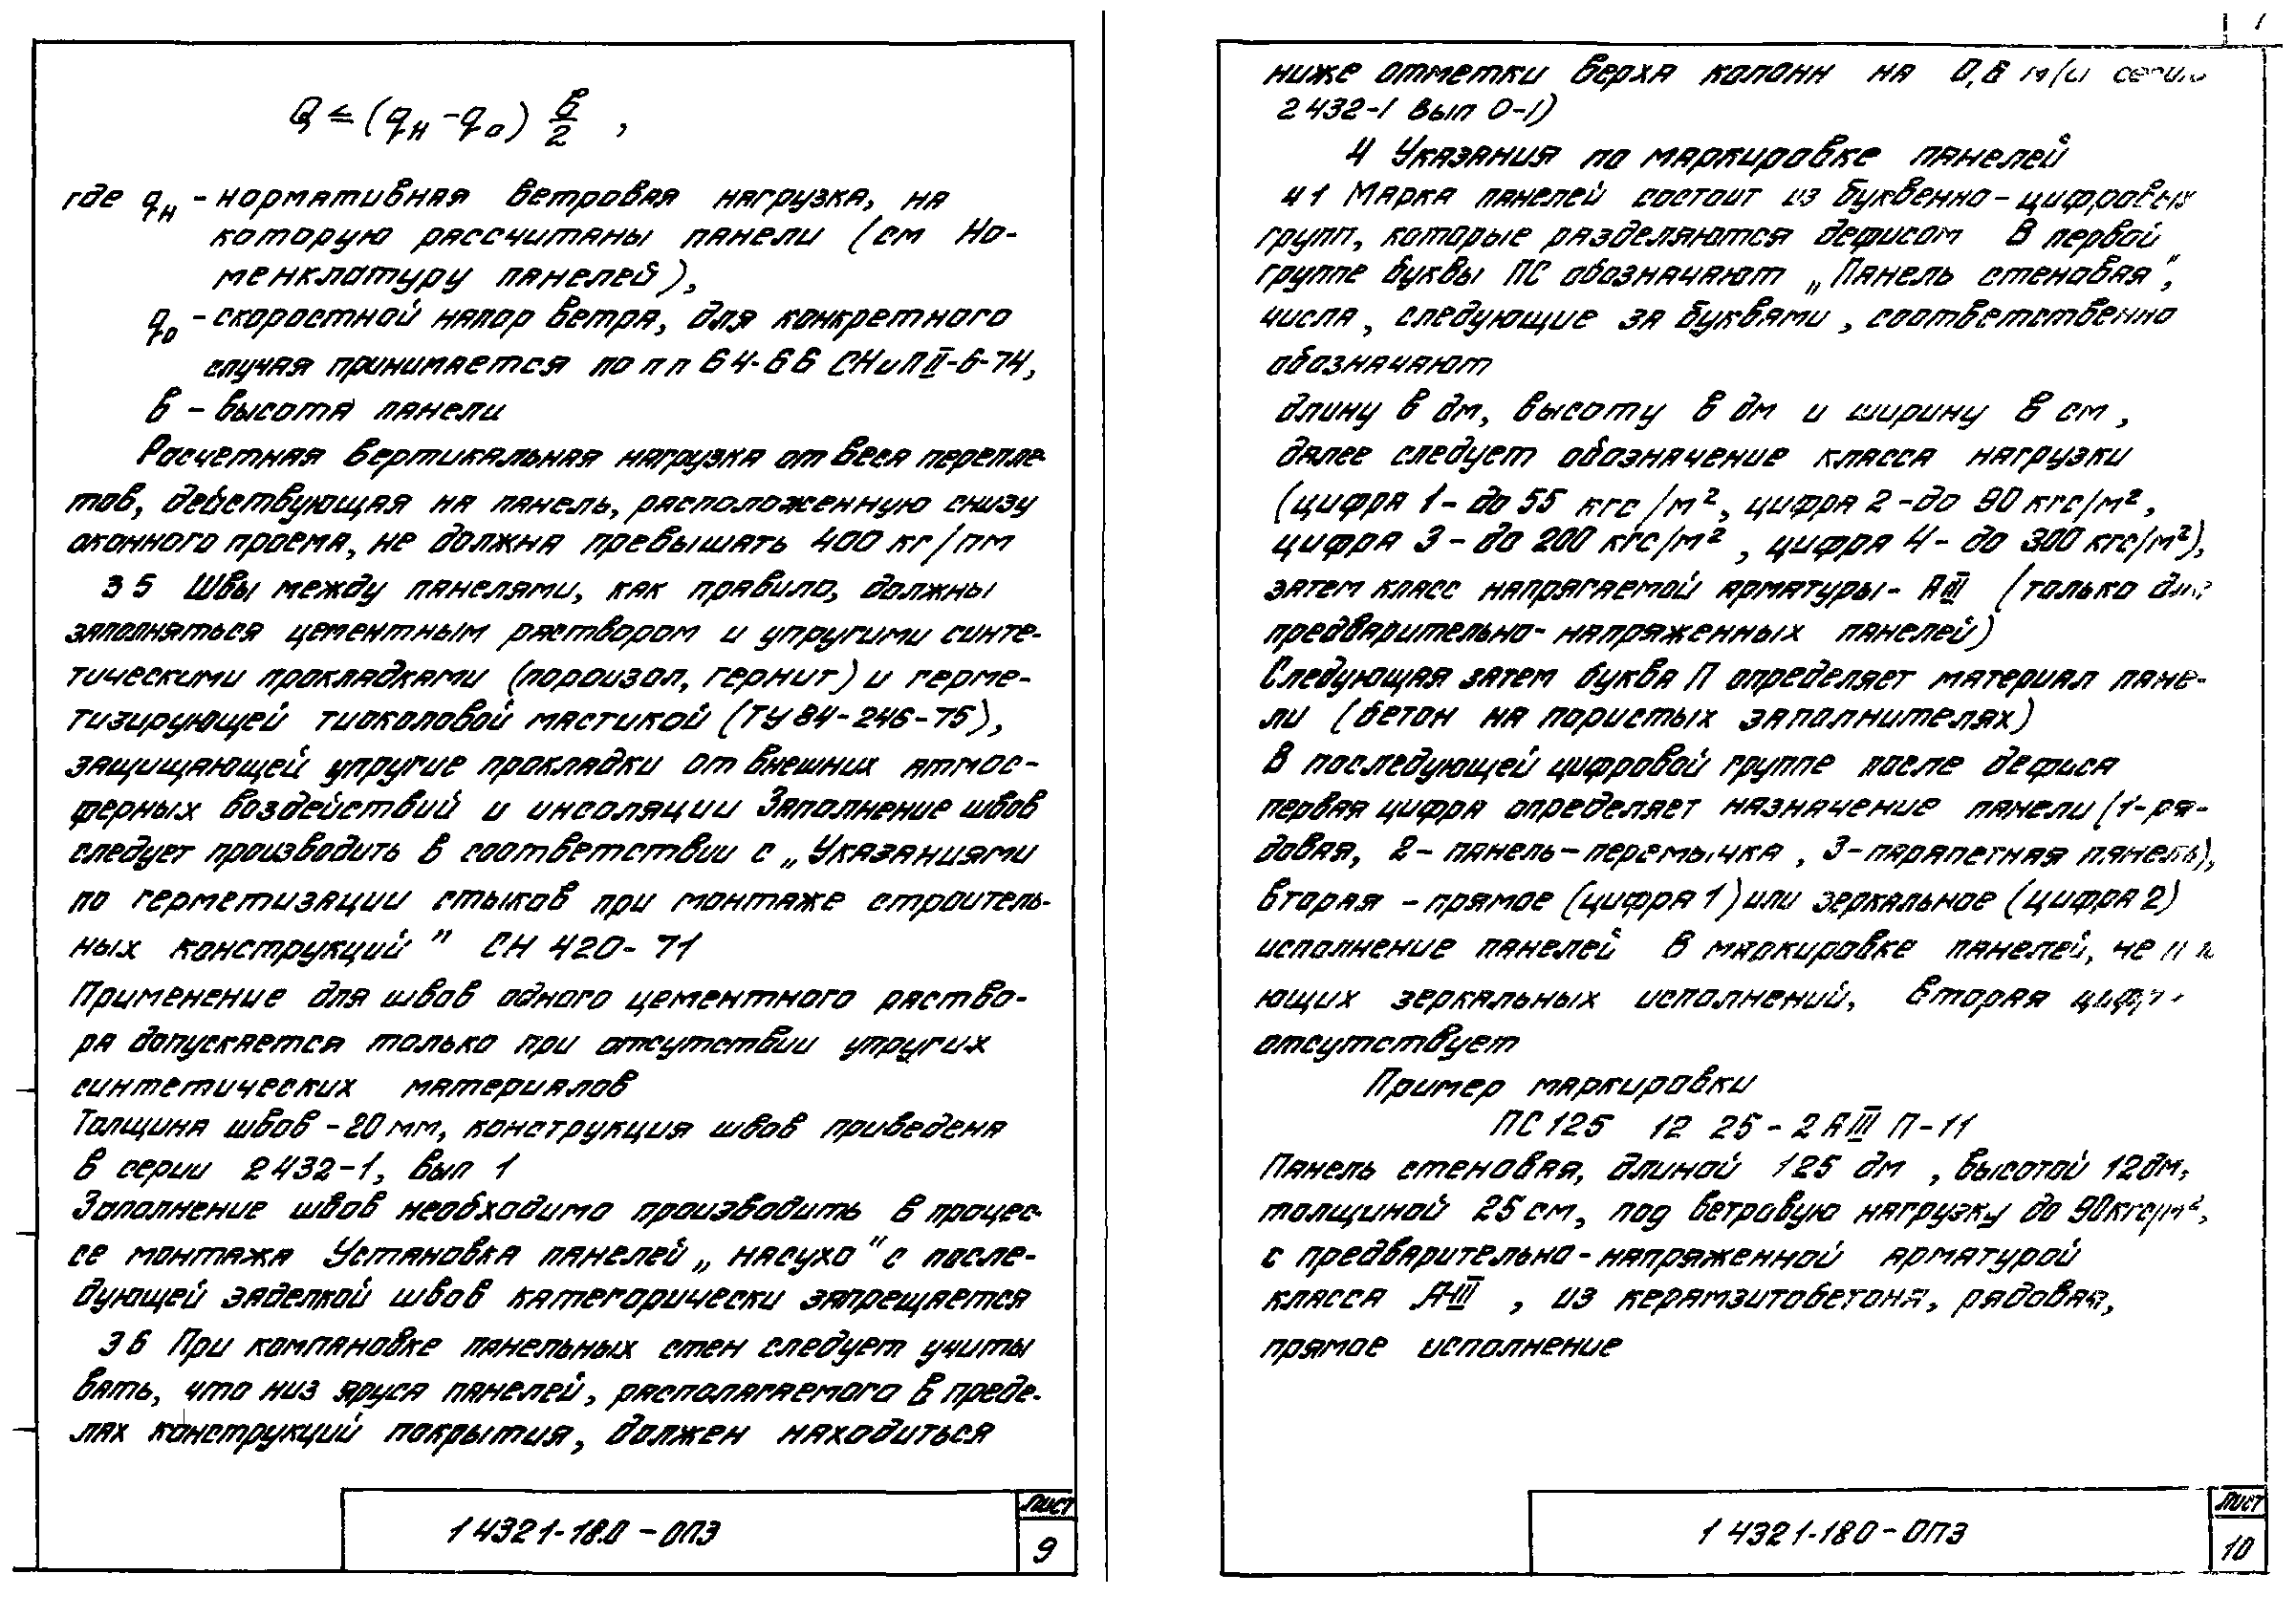 Q ≤ (qн - qо) в/2 ,
где qн - нормативная ветровая нагрузка, на
которую рассчитаны панели (см Но-
менклатуру панелей),
qо - скоростной напор ветра, для конкретного
случая принимается по п п 6 4-6 6 СНиП II-6-74,
в - высота панели
Расчетная вертикальная нагрузка от веса перепле-
тов, действующая на панель, расположенную снизу
оконного проема, не должна превышать 400 кг/пм
3 5 Швы между панелями, как правило, должны
заполняться цементным раствором и упругими синте-
тическими прокладками (пороизол, гернит) и герме-
тизирующей тиоколовой мастикой (ТУ 84-246-75),
защищающей упругие прокладки от внешних атмос-
ферных воздействий и инсоляции Заполнение швов
следует производить в соответствии с „Указаниями
по герметизации стыков при монтаже строитель-
ных конструкций" СН 420-71
Применение для швов одного цементного раство-
ра допускается только при отсутствии упругих
синтетических материалов
Толщина швов - 20 мм, конструкция швов приведена
в серии 2 432-1, вып 1
Заполнение швов необходимо производить в процес-
се монтажа Установка панелей „насухо" с после-
дующей заделкой швов категорически запрещается
3 6 При компановке панельных стен следует учиты
вать, что низ яруса панелей, располагаемого в преде-
лах конструкций покрытия, должен находиться
1 432 1-18.0 - ОПЗ
Лист
9
ниже отметки верха колонн на 0,6 м
2 432-1 вып 0-1)
4 Указания по маркировке панелей
4 1 Марка панелей состоит из буквенно-цифровых
групп, которые разделяются дефисом В первой
группе буквы ПС обозначают „Панель стеновая",
числа, следующие за буквами, соответственно
обозначают
длину в дм, высоту в дм и ширину в см,
далее следует обозначение класса нагрузки
(цифра 1- до 55 кгс/м², цифра 2 - до 90 кгс/м²,
цифра 3 - до 200 кгс/м², цифра 4 - до 300 кгс/м²),
затем класс напрягаемой арматуры- АIII (только для
предварительно-напряженных панелей)
Следующая затем буква П определяет материал пане-
ли (бетон на пористых заполнителях)
В последующей цифровой группе после дефиса
первая цифра определяет назначение панели (1-ря-
довая, 2- панель-перемычка, 3-парапетная панель),
вторая - прямое (цифра 1) или зеркальное (цифра 2)
исполнение панелей В маркировке панелей, не
ющих зеркальных исполнений, вторая цифра
отсутствует
Пример маркировки
ПС 125 12 25 - 2 АIII П-11
Панель стеновая, длиной 125 дм, высотой 12дм,
толщиной 25 см, под ветровую нагрузку до 90кгс/м²,
с предварительно-напряженной арматурой
класса А-III, из керамзитобетона, рядовая,
прямое исполнение
1 432 1-18 0 - ОПЗ
Лист
10